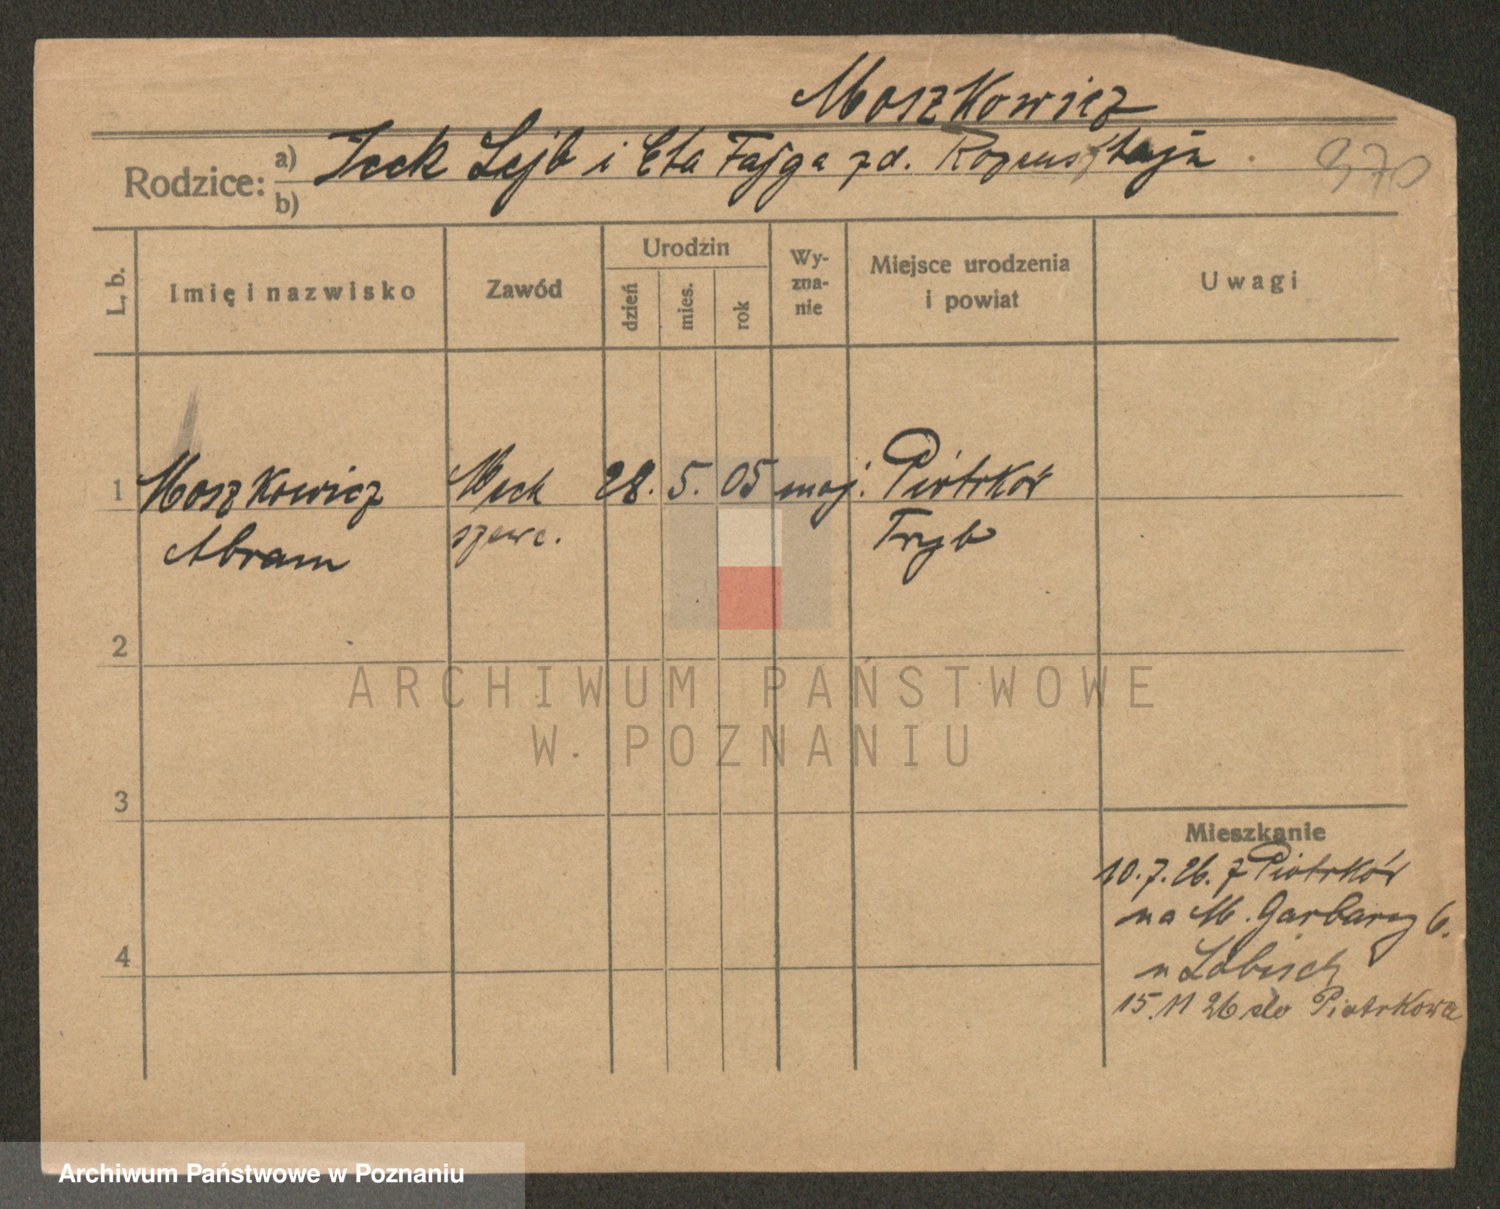 Moszkowicz
Rodzice: a) Icek Lejb i Eta Fajga zd.
b)
370
L. b.
Imię i nazwisko
Zawód
Urodzin
dzień
mies.
rok
Wy-
zna-
nie
Miejsce urodzenia
i powiat
Uwagi
1 Moszkowicz 28. 5. 05 moj. Piotrków
Abram szewc. Tryb
2
ARCHIWUM PAŃSTWOWE
W POZNANIU
3
Mieszkanie
10.7.26. z Piotrków
na M. Garbary 6.
4
u Lobisch
15.11 26 do Piotrkowa
Archiwum Państwowe w Poznaniu